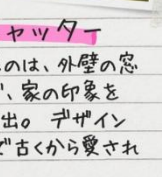 ャッター
のは、外壁の窓
、家の印象を
出。デザイン
で古くから愛され